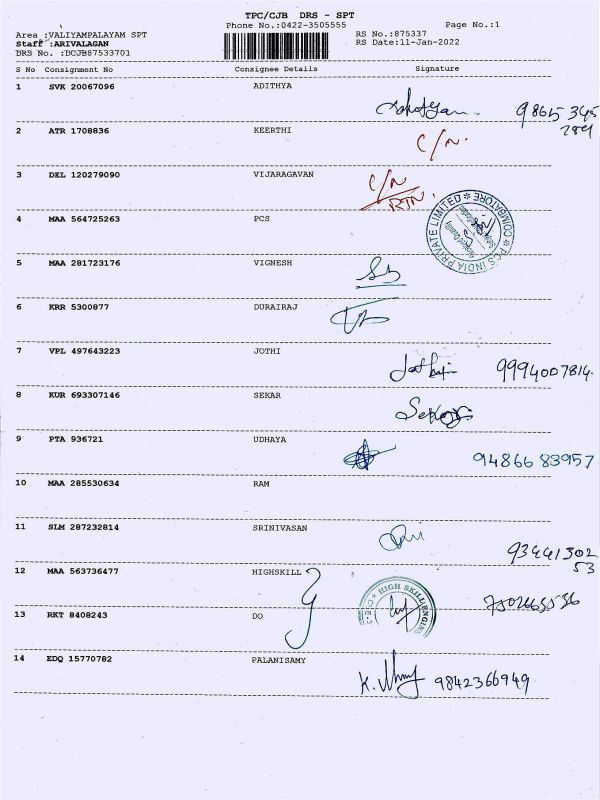 TPC/CJB DRS - SPT
Phone No.:0422-3505555
Page No.:1
Area :VALIYAMPALAYAM SPT
RS No.:875337
Staff :ARIVALAGAN
RS Date:11-Jan-2022
DRS No. :DCJB87533701
S No Consignment No Consignee Details Signature
1 SVK 20067096 ADITHYA
98655 345
289
2 ATR 1708836 KEERTHI
C/N.
3 DEL 120279090 VIJARAGAVAN
C/N
RTN.
4 MAA 564725263 PCS
PCS INDIA PRIVATE LIMITED * COIMBATORE *
5 MAA 281723176 VIGNESH
6 KRR 5300877 DURAIRAJ
7 VPL 497643223 JOTHI
Jothi 9994007814.
8 KUR 693307146 SEKAR
9 PTA 936721 UDHAYA
94866 83957
10 MAA 285530634 RAM
11 SLM 287232814 SRINIVASAN
93441302
53
12 MAA 563736477 HIGHSKILL
HIGH SKILL ENGINE
13 RKT 8408243 DO
14 EDQ 15770782 PALANISAMY
9842366949